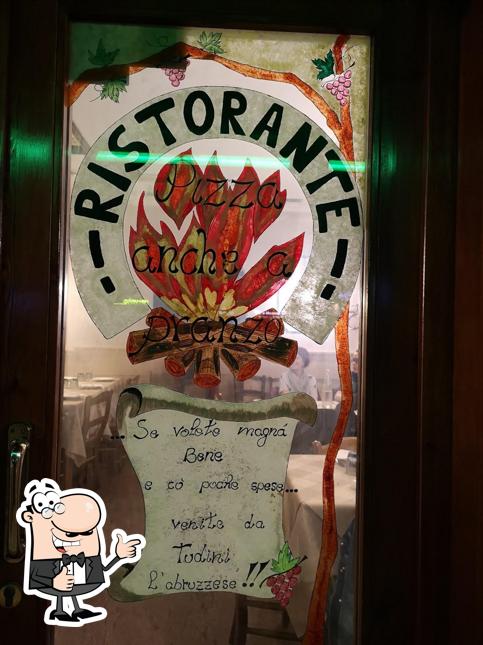 -RISTORANTE-
Pizza
anche a
pranzo
... Se volete magná
Bene
e co' poche spese...
venite da
Tudini
L'abruzzese!!